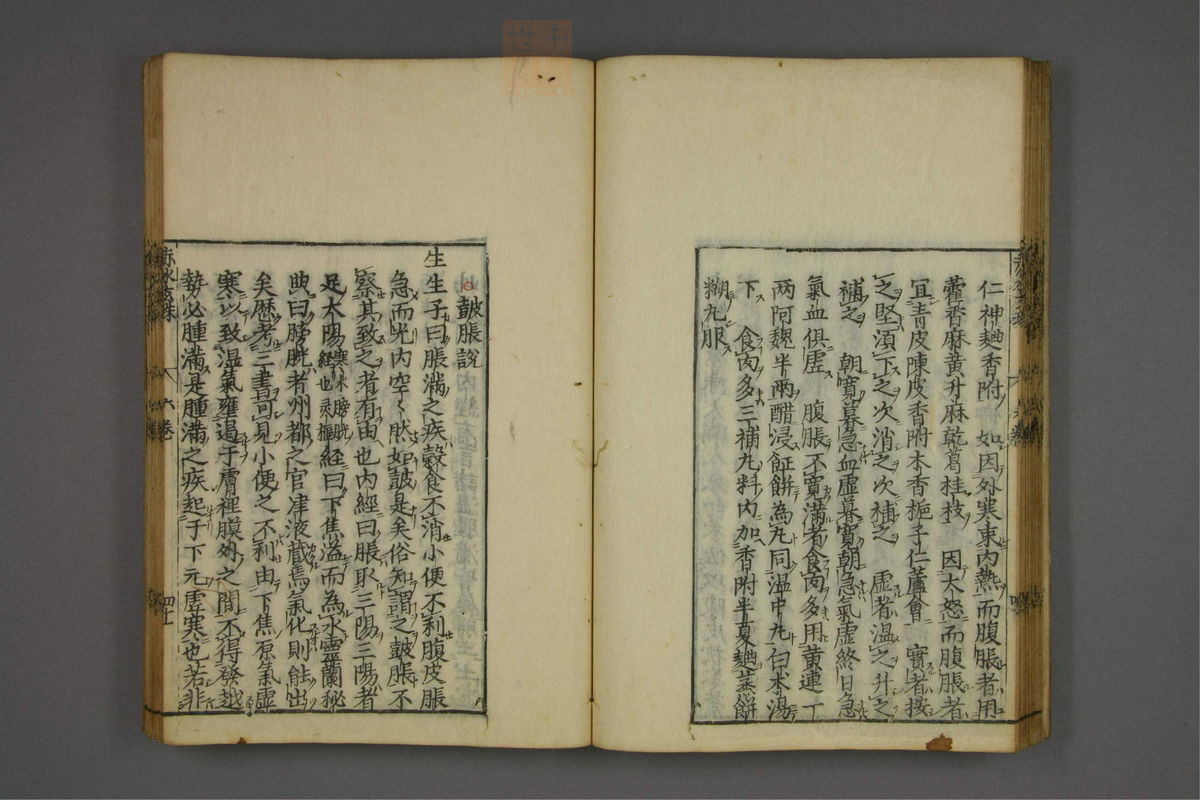 仁神麯香附 如因外寒束内熱而腹脹者用
藿香麻黄升麻乾葛桂枝 因大怒而腹脹者
宜青皮陳皮香附木香梔子仁蘆會 實者按
之堅須下之次消之次補之 虚者温之升之
補之 朝寛暮急血虚暮寛朝急氣虚終日急
氣血俱虚 腹脹不寛滿者食肉多用黄連一
两阿魏半兩醋浸蒸餅為丸同温中丸白朮湯
下 食肉多三補丸料内加香附半夏麯蒸餅
糊丸服
皷脹説
生生子曰脹滿之疾穀食不消小便不利腹皮脹
急而光内空々然如皷是矣俗知謂之皷脹不
察其致之者有由也内經曰脹取三陽三陽者
足太陽寒水膀胱經也灵樞經曰下焦溢而為水靈蘭秘
典曰膀胱者州都之官津液藏焉氣化則能出
矣歷考三書可見小便之不利由下焦原氣虚
寒以致温氣壅遏于膚裡膜外之間不得發越
勢必腫滿是腫滿之疾起于下元虚寒也若非
赤水玄珠 六卷